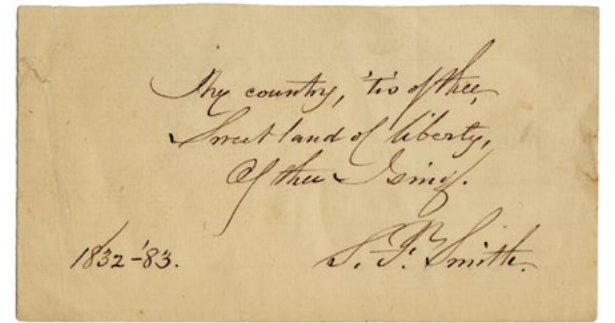 My country, 'tis of thee,
Sweet land of liberty,
Of thee I sing.
1832-'83.
S. F. Smith.